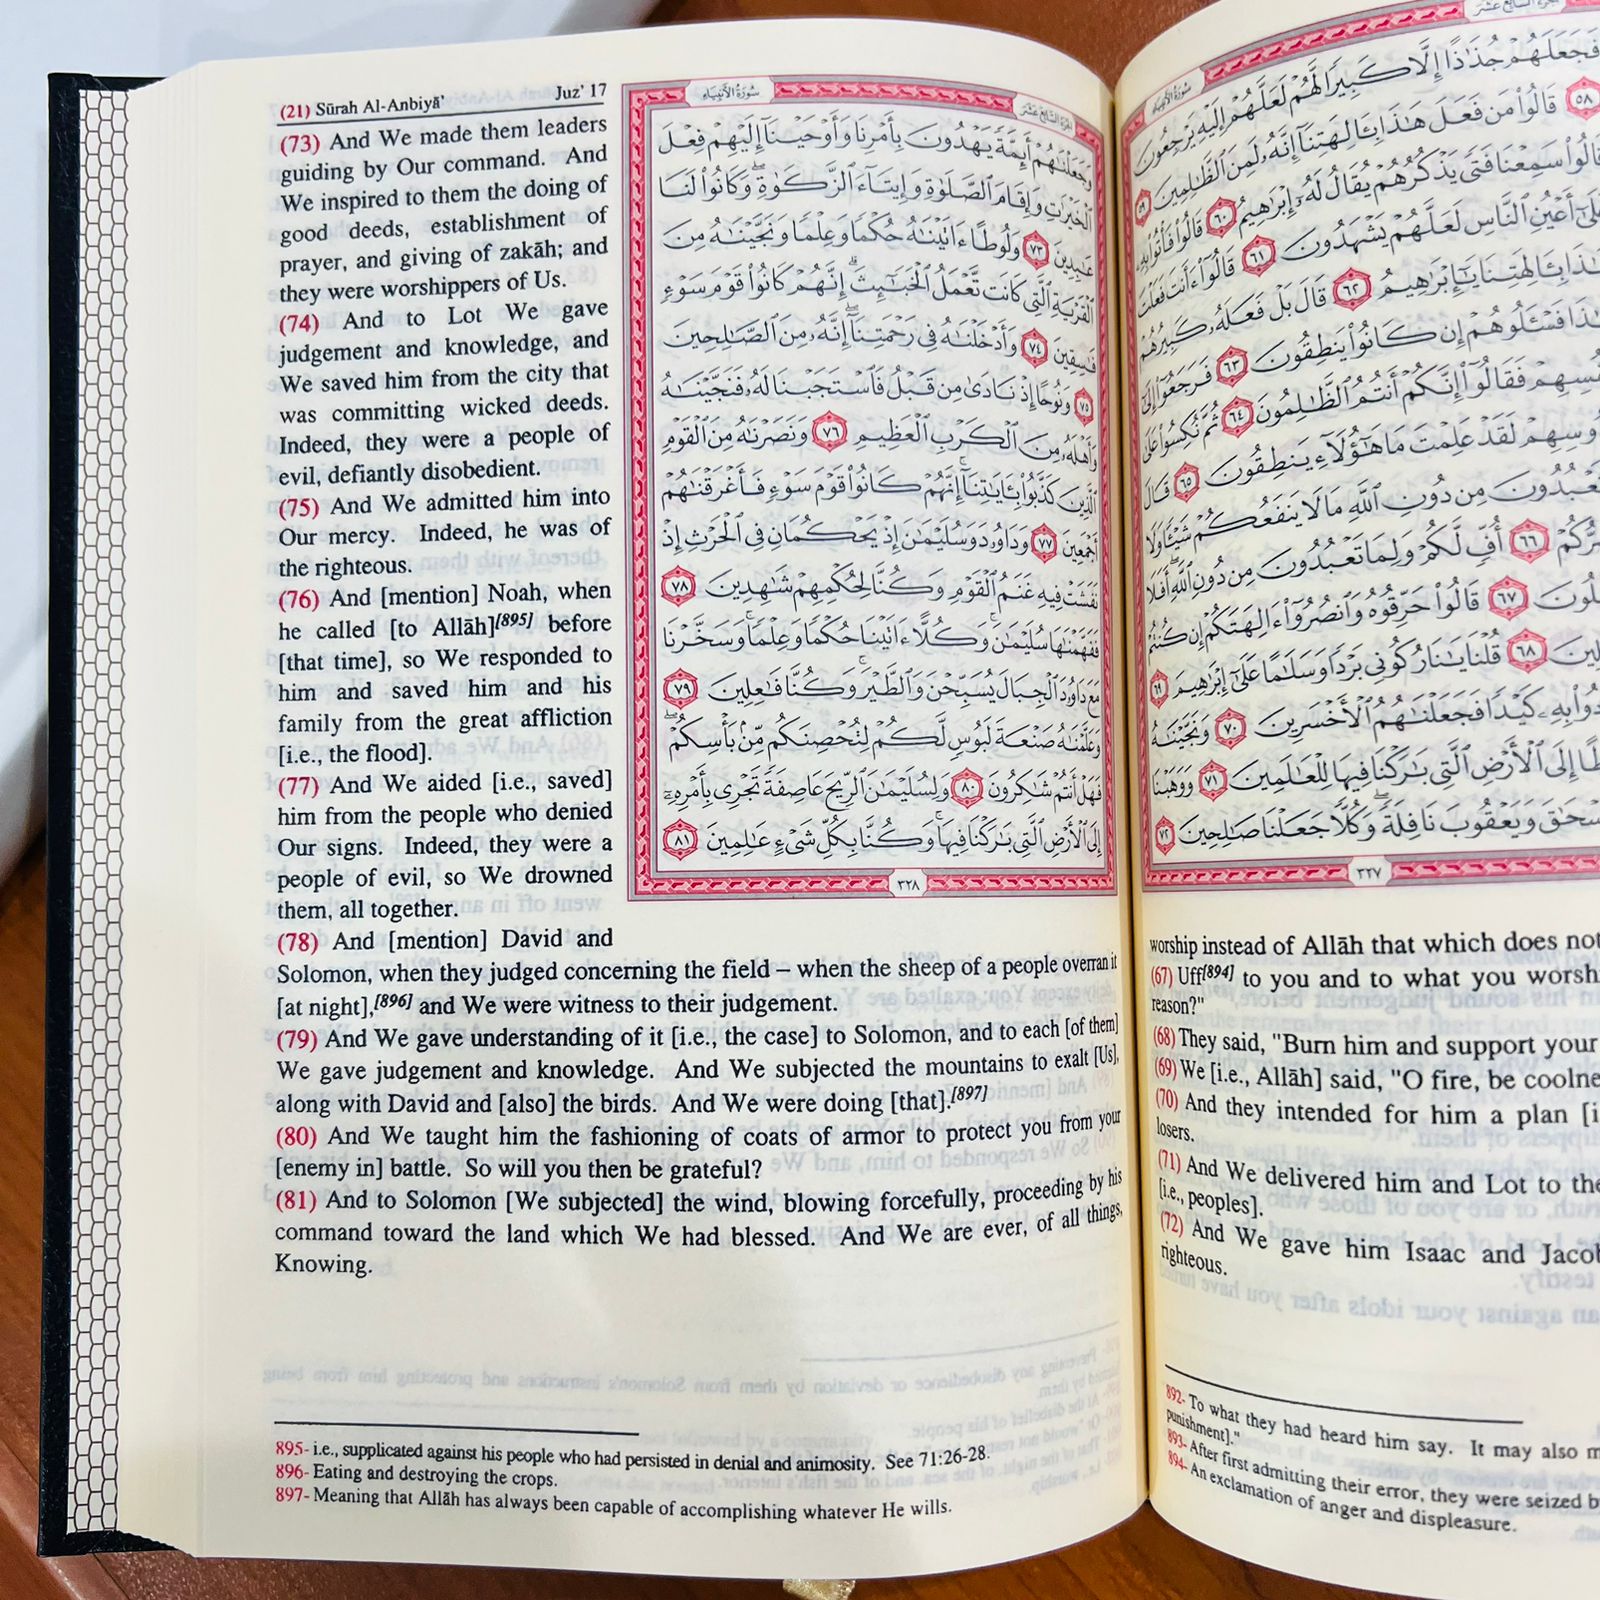 (21) Sūrah Al-Anbiyā’ Juz’ 17
(73) And We made them leaders
guiding by Our command. And
We inspired to them the doing of
good deeds, establishment of
prayer, and giving of zakāh; and
they were worshippers of Us.
(74) And to Lot We gave
judgement and knowledge, and
We saved him from the city that
was committing wicked deeds.
Indeed, they were a people of
evil, defiantly disobedient.
(75) And We admitted him into
Our mercy. Indeed, he was of
the righteous.
(76) And [mention] Noah, when
he called [to Allāh][895] before
[that time], so We responded to
him and saved him and his
family from the great affliction
[i.e., the flood].
(77) And We aided [i.e., saved]
him from the people who denied
Our signs. Indeed, they were a
people of evil, so We drowned
them, all together.
(78) And [mention] David and
Solomon, when they judged concerning the field – when the sheep of a people overran it
[at night],[896] and We were witness to their judgement.
(79) And We gave understanding of it [i.e., the case] to Solomon, and to each [of them]
We gave judgement and knowledge. And We subjected the mountains to exalt [Us],
along with David and [also] the birds. And We were doing [that].[897]
(80) And We taught him the fashioning of coats of armor to protect you from your
[enemy in] battle. So will you then be grateful?
(81) And to Solomon [We subjected] the wind, blowing forcefully, proceeding by his
command toward the land which We had blessed. And We are ever, of all things,
Knowing.
الجزء السابع عشر سورة الأنبياء
وَجَعَلْنَٰهُمْ أَئِمَّةً يَهْدُونَ بِأَمْرِنَا وَأَوْحَيْنَآ إِلَيْهِمْ فِعْلَ
ٱلْخَيْرَٰتِ وَإِقَامَ ٱلصَّلَوٰةِ وَإِيتَآءَ ٱلزَّكَوٰةِ ۖ وَكَانُوا۟ لَنَا
عَٰبِدِينَ ٧٣ وَلُوطًا ءَاتَيْنَٰهُ حُكْمًا وَعِلْمًا وَنَجَّيْنَٰهُ مِنَ
ٱلْقَرْيَةِ ٱلَّتِى كَانَت تَّعْمَلُ ٱلْخَبَٰٓئِثَ ۗ إِنَّهُمْ كَانُوا۟ قَوْمَ سَوْءٍ
فَٰسِقِينَ ٧٤ وَأَدْخَلْنَٰهُ فِى رَحْمَتِنَآ ۖ إِنَّهُۥ مِنَ ٱلصَّٰلِحِينَ
٧٥ وَنُوحًا إِذْ نَادَىٰ مِن قَبْلُ فَٱسْتَجَبْنَا لَهُۥ فَنَجَّيْنَٰهُ
وَأَهْلَهُۥ مِنَ ٱلْكَرْبِ ٱلْعَظِيمِ ٧٦ وَنَصَرْنَٰهُ مِنَ ٱلْقَوْمِ
ٱلَّذِينَ كَذَّبُوا۟ بِـَٔايَٰتِنَآ ۚ إِنَّهُمْ كَانُوا۟ قَوْمَ سَوْءٍ فَأَغْرَقْنَٰهُمْ
أَجْمَعِينَ ٧٧ وَدَاوُۥدَ وَسُلَيْمَٰنَ إِذْ يَحْكُمَانِ فِى ٱلْحَرْثِ إِذْ
نَفَشَتْ فِيهِ غَنَمُ ٱلْقَوْمِ وَكُنَّا لِحُكْمِهِمْ شَٰهِدِينَ ٧٨
فَفَهَّمْنَٰهَا سُلَيْمَٰنَ ۚ وَكُلًّا ءَاتَيْنَا حُكْمًا وَعِلْمًا ۚ وَسَخَّرْنَا
مَعَ دَاوُۥدَ ٱلْجِبَالَ يُسَبِّحْنَ وَٱلطَّيْرَ ۚ وَكُنَّا فَٰعِلِينَ ٧٩
وَعَلَّمْنَٰهُ صَنْعَةَ لَبُوسٍ لَّكُمْ لِتُحْصِنَكُم مِّنۢ بَأْسِكُمْ ۖ
فَهَلْ أَنتُمْ شَٰكِرُونَ ٨٠ وَلِسُلَيْمَٰنَ ٱلرِّيحَ عَاصِفَةً تَجْرِى بِأَمْرِهِۦٓ
إِلَى ٱلْأَرْضِ ٱلَّتِى بَٰرَكْنَا فِيهَا ۚ وَكُنَّا بِكُلِّ شَىْءٍ عَٰلِمِينَ ٨١
٣٢٨
895- i.e., supplicated against his people who had persisted in denial and animosity. See 71:26-28.
896- Eating and destroying the crops.
897- Meaning that Allāh has always been capable of accomplishing whatever He wills.
الجزء السابع عشر سورة الأنبياء
فَجَعَلَهُمْ جُذَٰذًا إِلَّا كَبِيرًا لَّهُمْ لَعَلَّهُمْ إِلَيْهِ يَرْجِعُونَ
٥٨ قَالُوا۟ مَن فَعَلَ هَٰذَا بِـَٔالِهَتِنَآ إِنَّهُۥ لَمِنَ ٱلظَّٰلِمِينَ ٥٩
قَالُوا۟ سَمِعْنَا فَتًى يَذْكُرُهُمْ يُقَالُ لَهُۥٓ إِبْرَٰهِيمُ ٦٠ قَالُوا۟ فَأْتُوا۟ بِهِۦ
عَلَىٰٓ أَعْيُنِ ٱلنَّاسِ لَعَلَّهُمْ يَشْهَدُونَ ٦١ قَالُوٓا۟ ءَأَنتَ فَعَلْتَ
هَٰذَا بِـَٔالِهَتِنَا يَٰٓإِبْرَٰهِيمُ ٦٢ قَالَ بَلْ فَعَلَهُۥ كَبِيرُهُمْ
هَٰذَا فَسْـَٔلُوهُمْ إِن كَانُوا۟ يَنطِقُونَ ٦٣ فَرَجَعُوٓا۟ إِلَىٰٓ
فَقَالُوٓا۟ إِنَّكُمْ أَنتُمُ ٱلظَّٰلِمُونَ ٦٤ ثُمَّ نُكِسُوا۟ عَلَىٰ
لَقَدْ عَلِمْتَ مَا هَٰٓؤُلَآءِ يَنطِقُونَ ٦٥ قَالَ
مِن دُونِ ٱللَّهِ مَا لَا يَنفَعُكُمْ شَيْـًٔا وَلَا
٦٦ أُفٍّ لَّكُمْ وَلِمَا تَعْبُدُونَ مِن دُونِ ٱللَّهِ ۖ أَفَلَا
٦٧ قَالُوا۟ حَرِّقُوهُ وَٱنصُرُوٓا۟ ءَالِهَتَكُمْ إِن كُنتُمْ
٦٨ قُلْنَا يَٰنَارُ كُونِى بَرْدًا وَسَلَٰمًا عَلَىٰٓ إِبْرَٰهِيمَ ٦٩
بِهِۦ كَيْدًا فَجَعَلْنَٰهُمُ ٱلْأَخْسَرِينَ ٧٠ وَنَجَّيْنَٰهُ
إِلَى ٱلْأَرْضِ ٱلَّتِى بَٰرَكْنَا فِيهَا لِلْعَٰلَمِينَ ٧١ وَوَهَبْنَا
وَيَعْقُوبَ نَافِلَةً ۖ وَكُلًّا جَعَلْنَا صَٰلِحِينَ ٧٢
٣٢٧
worship instead of Allāh that which does not
(67) Uff[894] to you and to what you worsh
reason?"
(68) They said, "Burn him and support your
(69) We [i.e., Allāh] said, "O fire, be coolne
(70) And they intended for him a plan [i
losers.
(71) And We delivered him and Lot to the
[i.e., peoples].
(72) And We gave him Isaac and Jacob
righteous.
892- To what they had heard him say. It may also m
punishment]."
893- After first admitting their error, they were seized b
894- An exclamation of anger and displeasure.